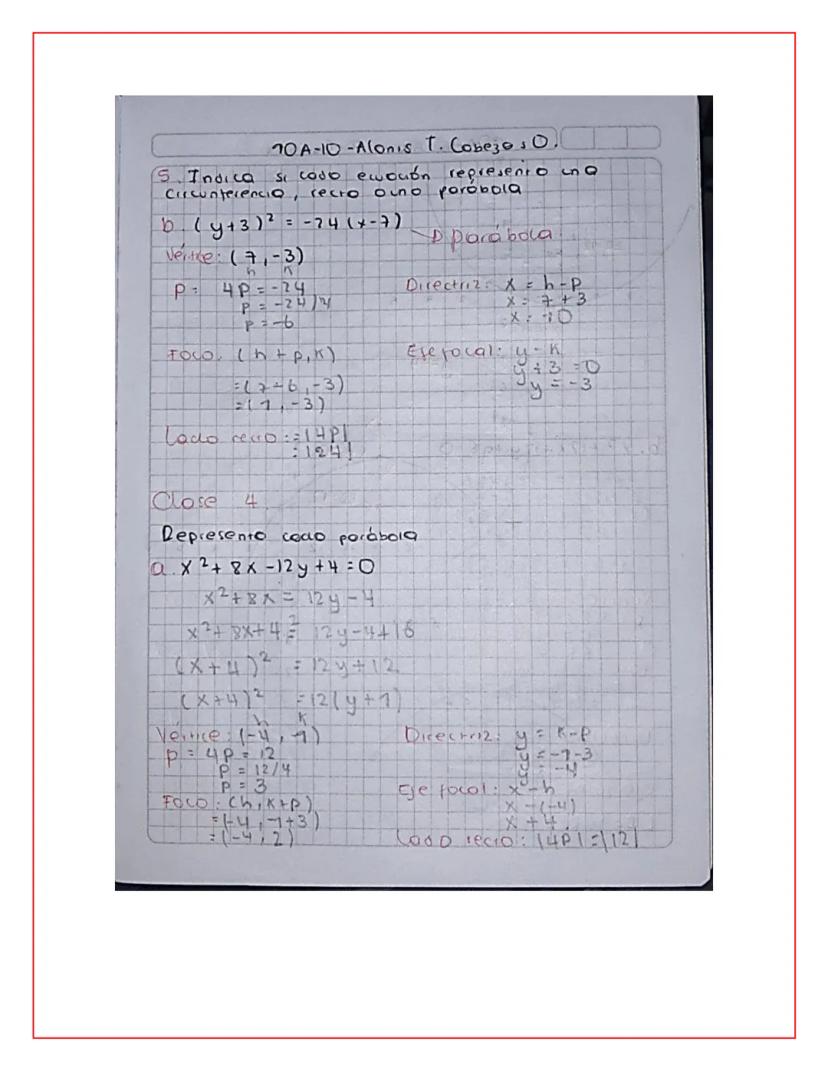 10A-10 - Alonis T. Cabezas O.
5. Indica si cada ecuación representa una
circunferencia, recta o una parábola
b. (y+3)² = -24(x-7)
→ parábola
Vértice: (7, -3)
h k
P = 4P = -24
P = -24/4
P = -6
Directriz: x = h-p
x = 7+3
x = 10
Foco. (h+p, k)
=(7-6, -3)
=(1, -3)
Eje focal: y-k
y+3 = 0
y = -3
Lado recto: = |4P|
= |24|
Clase 4
Represento cada parábola
a. x² + 8x - 12y + 4 = 0
x² + 8x = 12y - 4
x² + 8x + 4² = 12y - 4 + 16
(x+4)² = 12y + 12
(x+4)² = 12(y+1)
h k
Vértice: (-4, -1)
P = 4P = 12
P = 12/4
P = 3
Directriz: y = k-p
y = -1-3
y = -4
Foco: (h, k+p)
=(-4, -1+3)
=(-4, 2)
Eje focal: x-h
x-(-4)
x+4.
Lado recto: |4P| = |12|